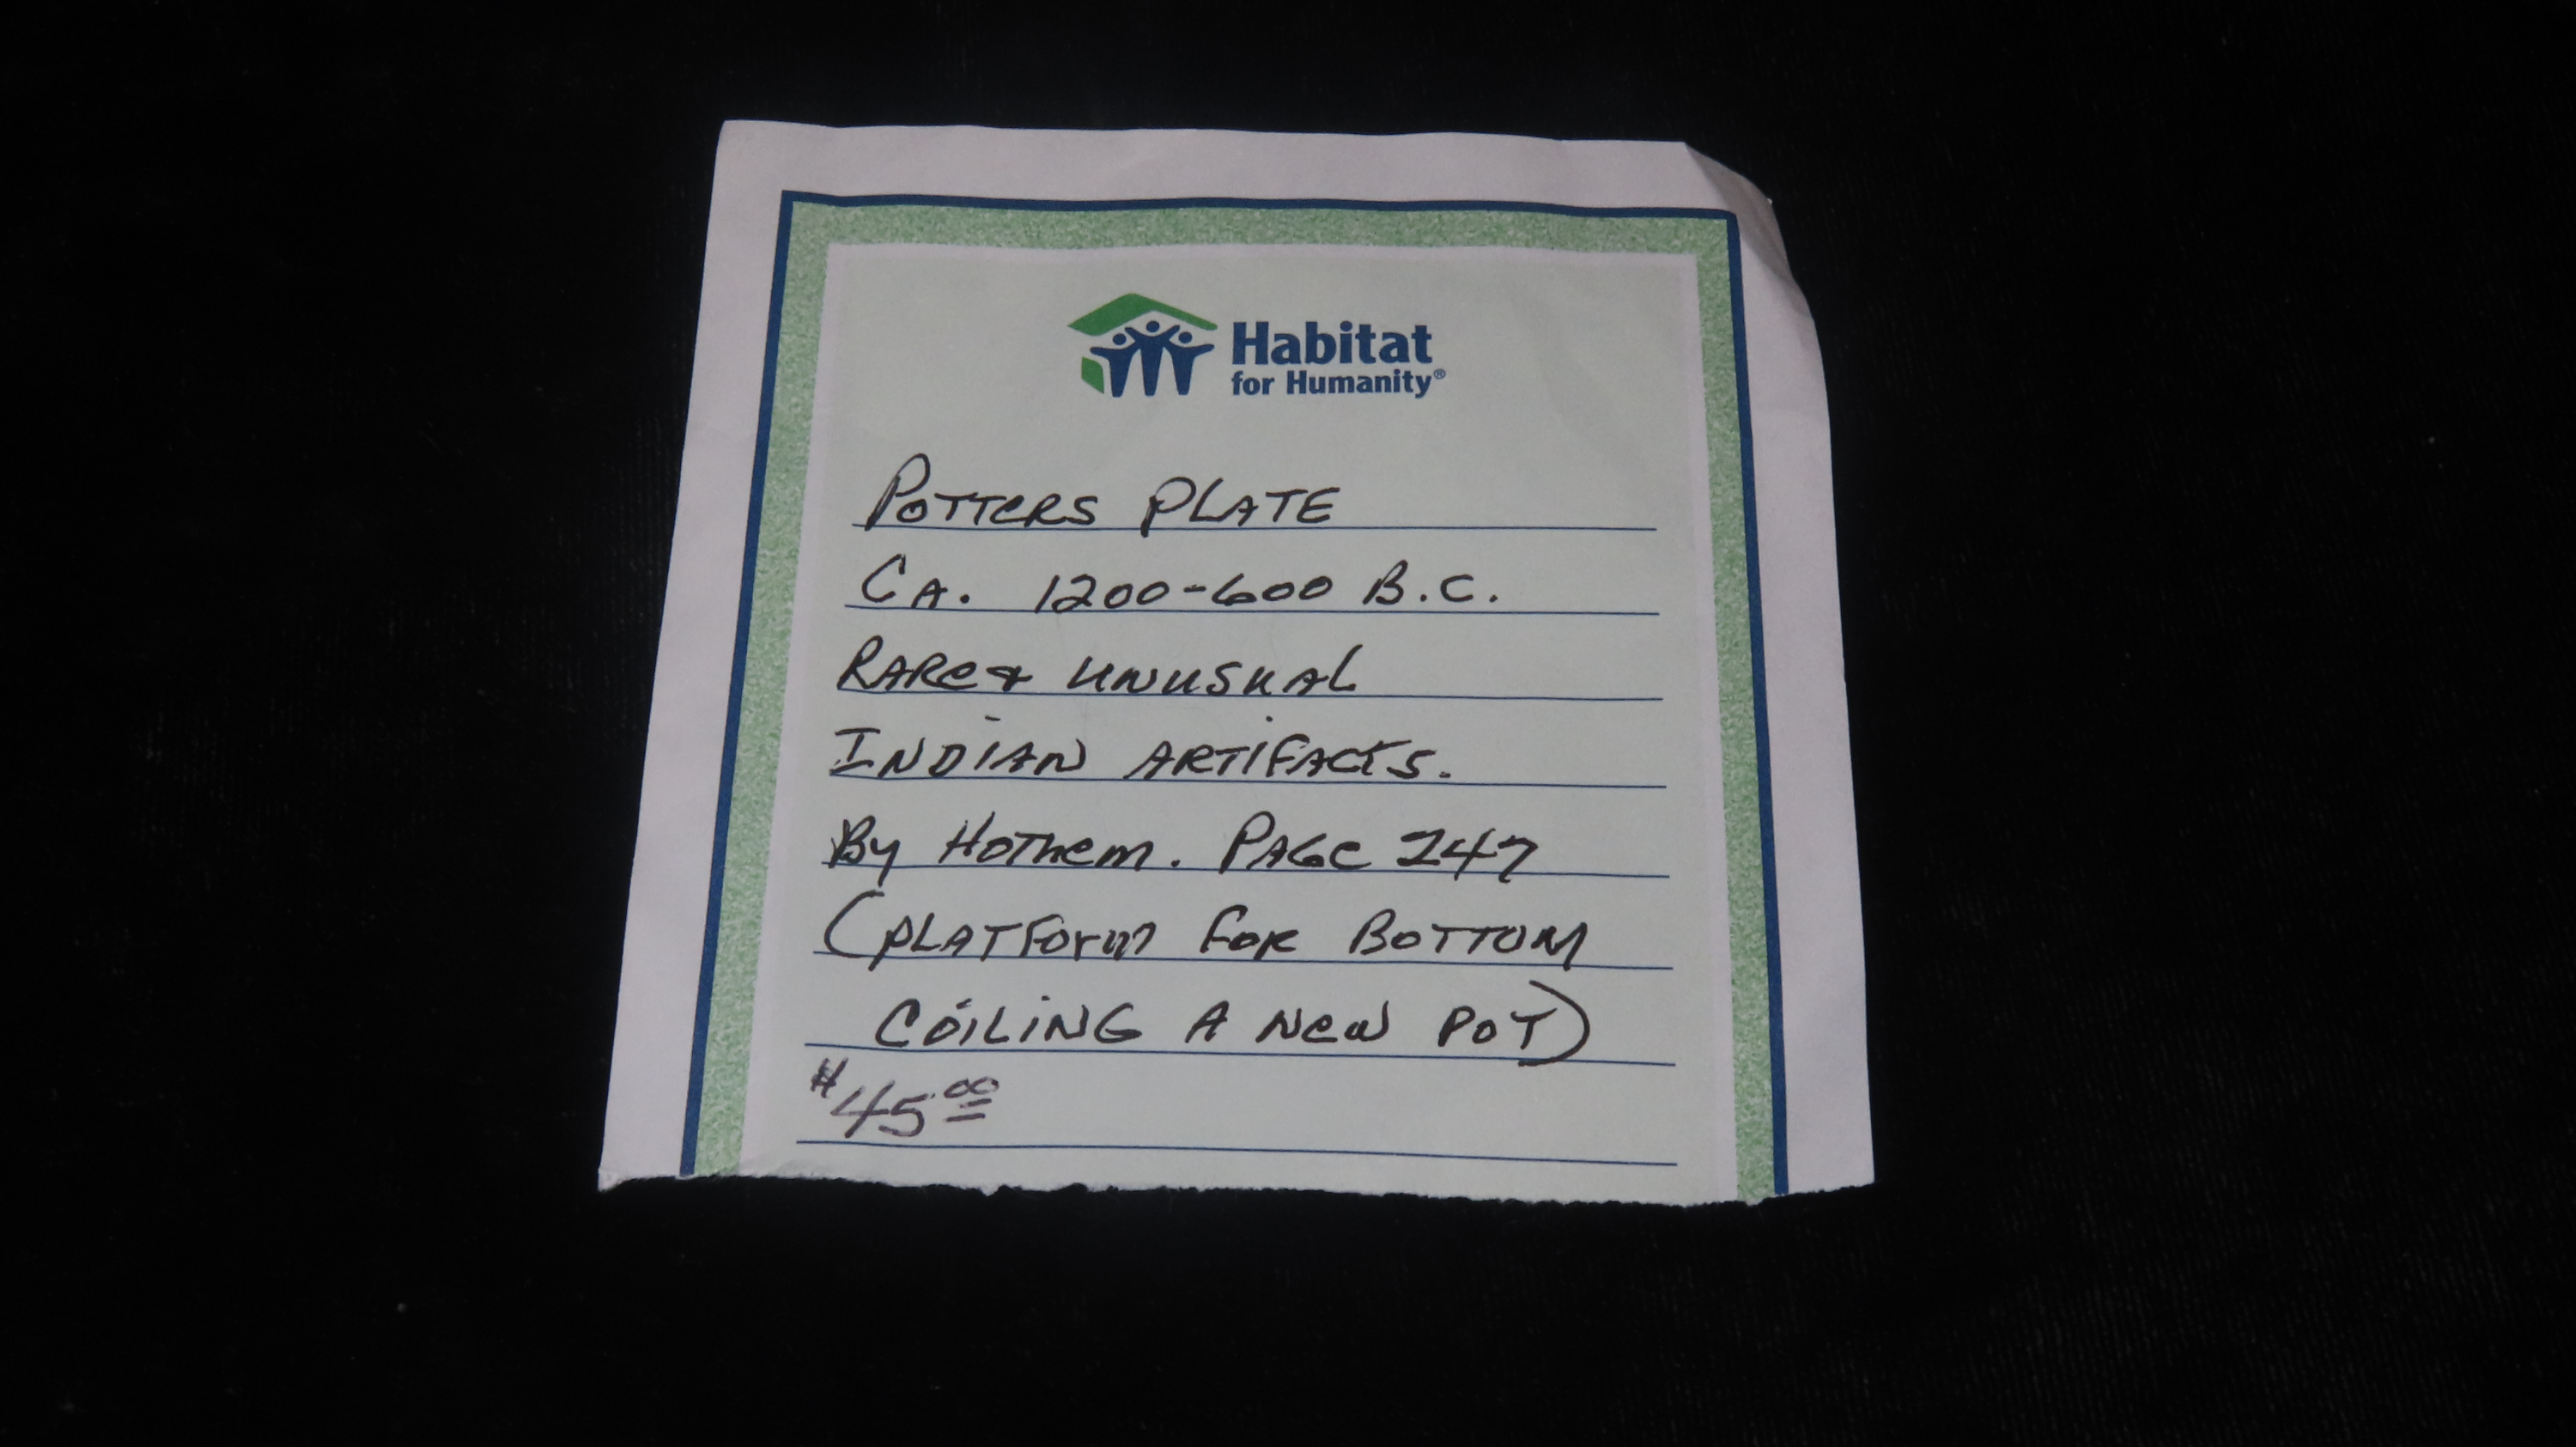 Habitat
for Humanity®
POTTERS PLATE
CA. 1200-600 B.C.
RARE & UNUSUAL
INDIAN ARTIFACTS.
By HOTHEM. PAGE 247
(PLATFORM FOR BOTTOM
COILING A NEW POT)
$45.00